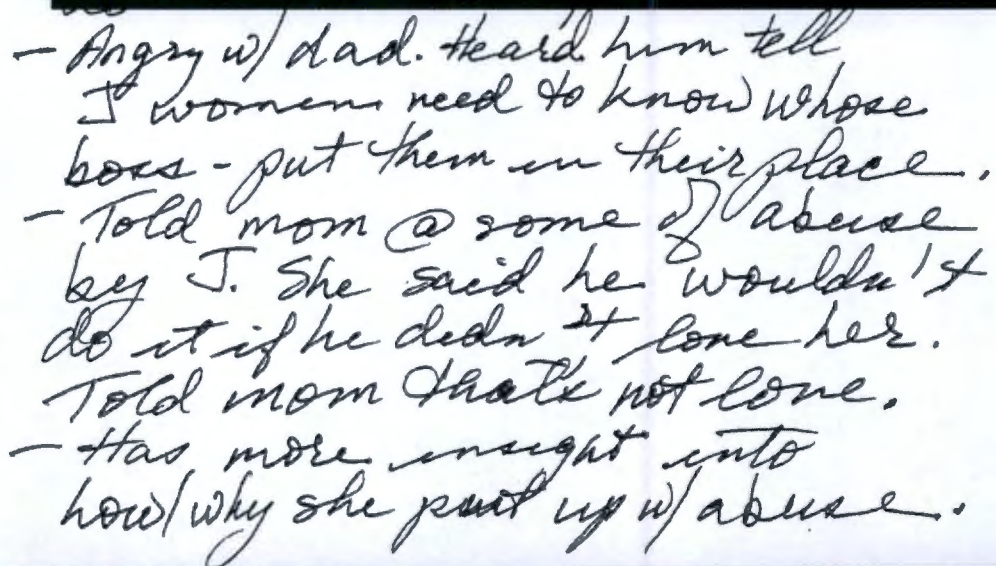 - Angry w/ dad. Heard him tell
J women need to know whose
boss - put them in their place.
- Told mom @ some of abuse
by J. She said he wouldn't
do it if he didn't love her.
Told mom that's not love.
- Has more insight into
how/why she put up w/ abuse.